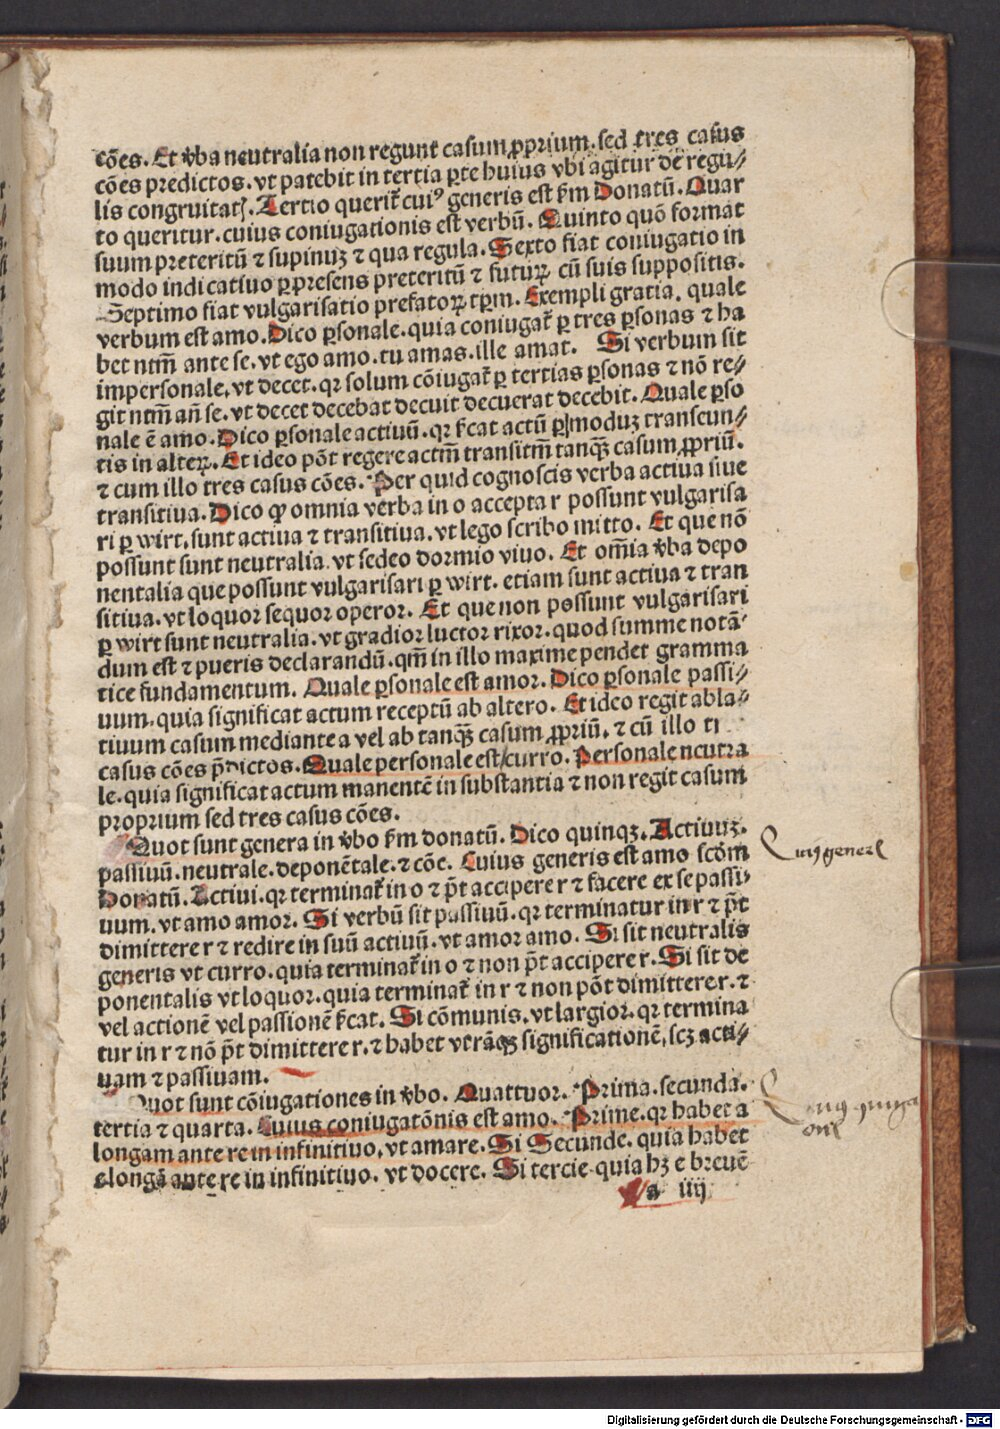 cōes. Et v̄ba neutralia non regunt casum ꝓprium. sed tres casus
cōes predictos. vt patebit in tertia ꝑte huius vbi agitur de regu⸗
lis congruitatꝭ. Tertio querit᷑ cuiꝰ generis est ẜm Donatū. Quar
to queritur. cuius coniugationis est verbū. Quinto quō format
suum preteritū ⁊ supinuꝫ ⁊ qua regula. Sexto fiat coniugatio in
modo indicatiuo ꝑ presens preteritū ⁊ futuꝝ cū suis suppositis.
Septimo fiat vulgarisatio prefatoꝝ tꝑm. Exempli gratia. quale
verbum est amo. Dico ꝑsonale. quia coniugat᷑ ꝑ tres ꝑsonas ⁊ ha
bet ntm̄ ante se. vt ego amo. tu amas. ille amat. Si verbum sit
impersonale, vt decet. qꝛ solum cōiugat᷑ ꝑ tertias ꝑsonas ⁊ nō re⸗
git ntm̄ an̄ se. vt decet decebat decuit decuerat decebit. Quale ꝑso
nale ē amo. Dico ꝑsonale actiuū. qꝛ ẜcat actū ꝑ moduꝫ transeun⸗
tis in alteꝝ. Et ideo pōt regere actm̄ transitm̄ tanqꝫ casum ꝓpriū.
⁊ cum illo tres casus cōes. Per quid cognoscis verba actiua siue
transitiua. Dico ꝙ omnia verba in o accepta r possunt vulgarisa
ri ꝑ wirt. sunt actiua ⁊ transitiua. vt lego scribo mitto. Et que nō
possunt sunt neutralia. vt sedeo dormio viuo. Et om̄ia v̄ba depo
nentalia que possunt vulgarisari ꝑ wirt. etiam sunt actiua ⁊ tran
sitiua. vt loquor sequor operor. Et que non possunt vulgarisari
ꝑ wirt sunt neutralia. vt gradior luctor rixor. quod summe notā⸗
dum est ⁊ pueris declarandū. qm̄ in illo maxime pendet gramma
tice fundamentum. Quale ꝑsonale est amor. Dico ꝑsonale passi⸗
uum. quia significat actum receptū ab altero. Et ideo regit abla⸗
tiuum casum mediante a vel ab tanqꝫ casum ꝓpriū. ⁊ cū illo
casus cōes p̄dictos. Quale personale est curro. Personale neutra
le. quia significat actum manentē in substantia ⁊ non regit casum
proprium sed tres casus cōes.
Quot sunt genera in v̄bo ẜm donatū. Dico quinqꝫ. Actiuuꝫ.
passiuū. neutrale. deponētale. ⁊ cōe. Cuius generis est amo scōm
Donatū. Actiui. qꝛ terminat᷑ in o ⁊ p̄t accipere r ⁊ facere ex se passi⸗
uum. vt amo amor. Si verbū sit passiuū. qꝛ terminatur in r ⁊ p̄t
dimittere r ⁊ redire in suū actiuū. vt amor amo. Si sit neutralis
generis vt curro. quia terminat᷑ in o ⁊ non p̄t accipere r. Si sit de
ponentalis vt loquor. quia terminat᷑ in r ⁊ non pōt dimittere r. ⁊
vel actionē vel passionē ẜcat. Si cōmunis. vt largior. qꝛ termina
tur in r ⁊ nō p̄t dimittere r. ⁊ habet vtrāqꝫ significationē, scꝫ acti⸗
uam ⁊ passiuam.
Quot sunt cōiugationes in v̄bo. Quattuor. Prima. secunda.
tertia ⁊ quarta. Cuius coniugatōnis est amo. Prime. qꝛ habet a
longam ante re in infinitiuo, vt amare. Si Secunde. quia habet
e longā ante re in infinitiuo. vt docere. Si tercie. quia hꝫ e breuē
a iiij